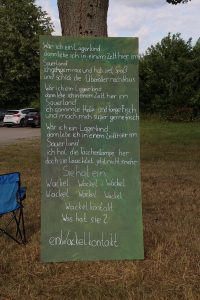 Wär ich ein Lagerkind
dann lebe ich in einem Zelt hier im
Sauerland
und hab viel Spaß
und schlaf die
Wär ich ein Lagerkind
dann lebe ich in einem Zelt hier im
Sauerland
ich sammle Holz und
und mach mich
Wär ich ein Lagerkind
dann lebe ich in einem Zelt hier im
Sauerland
ich hol die Taschenlampe her
doch sie leuchtet jetzt nicht mehr
Sie hat ein
Wackel Wackel Wackel
Wackel Wackel Wackel
Wackelkontakt
Was hat sie?
einWackelkontakt